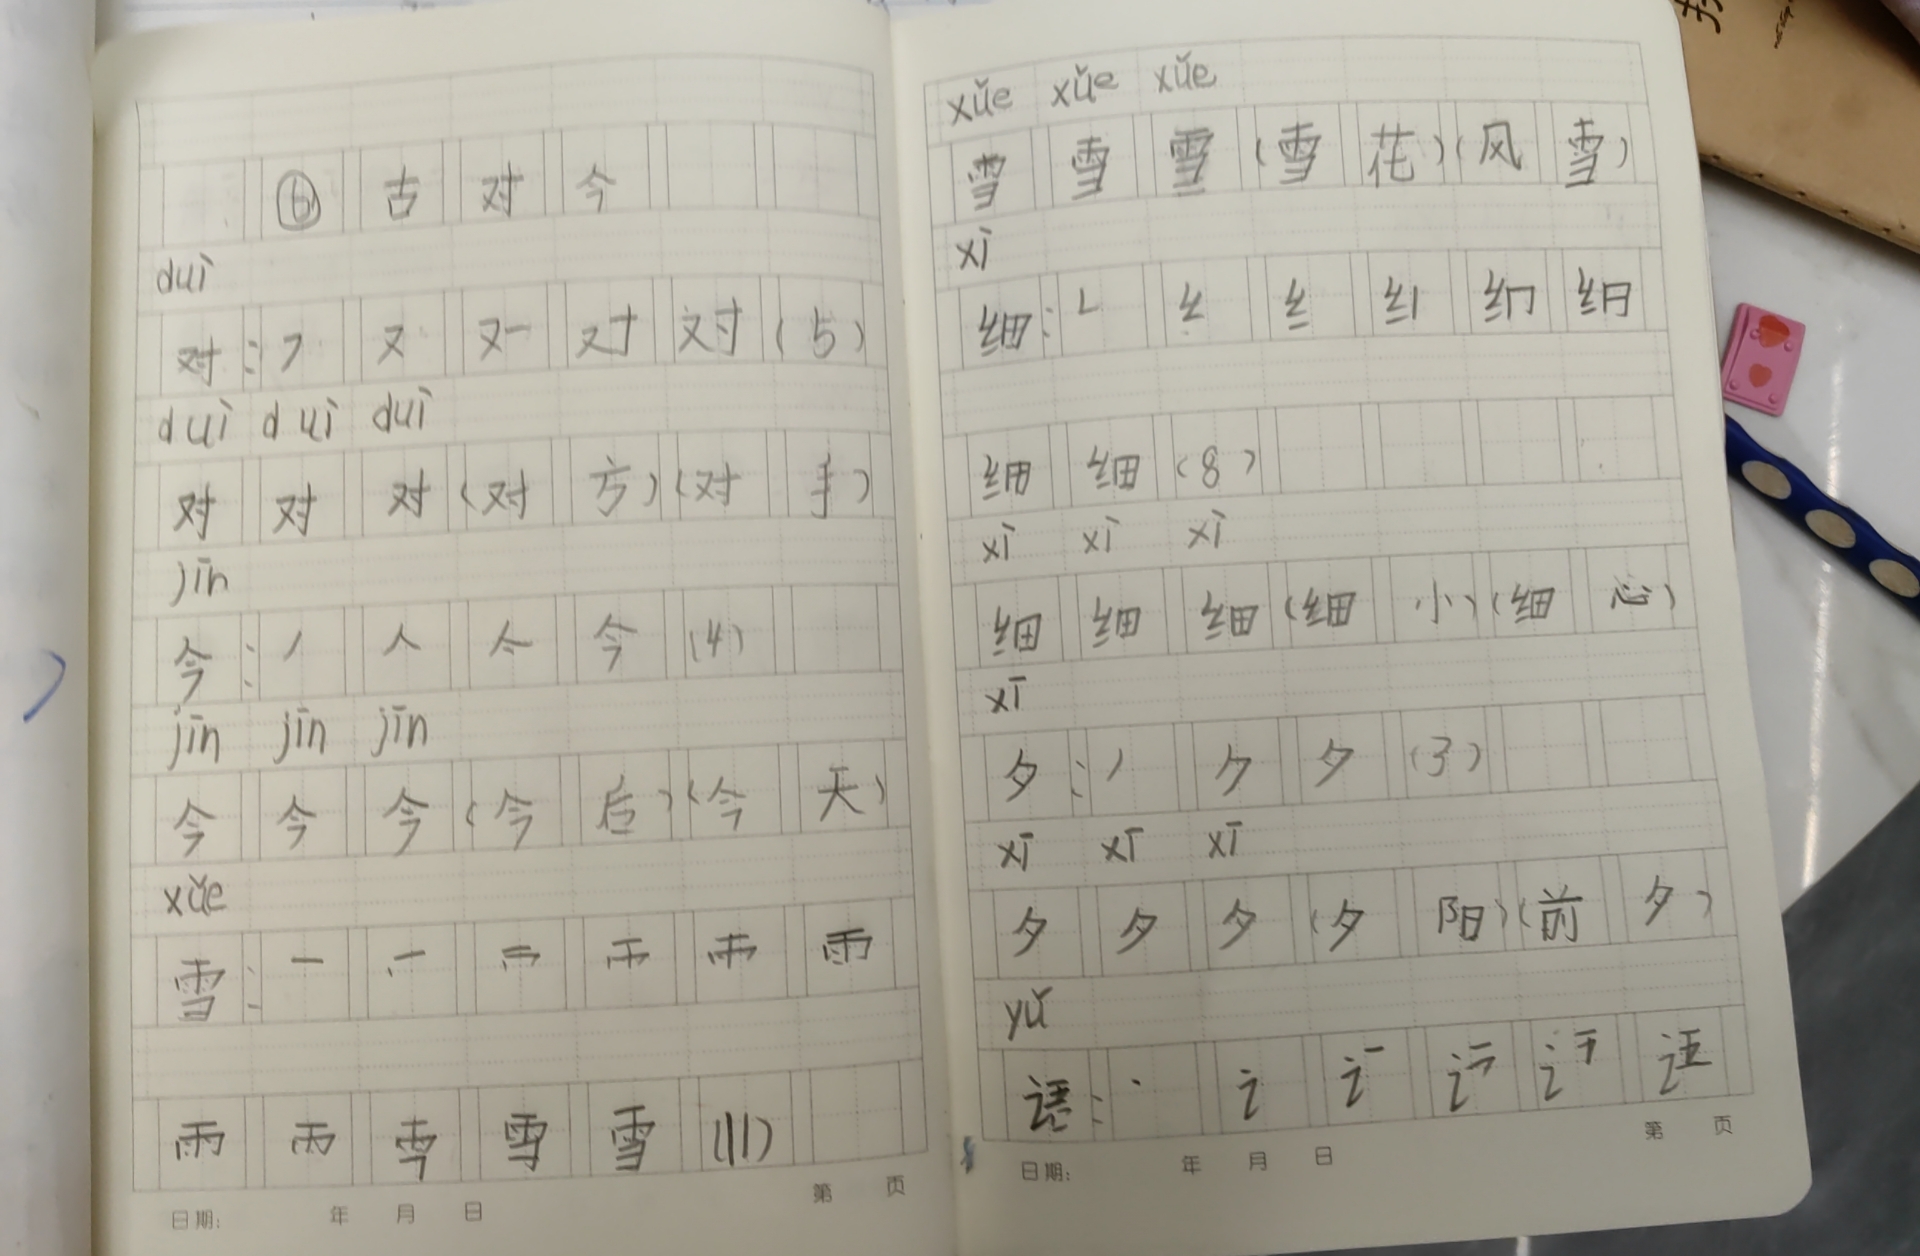 ⑥ 古 对 今
duì
对：フ 又 又一 对 对 (5)
duì duì duì
对 对 对 (对 方) (对 手)
jīn
今：丿 人 亼 今 (4)
jīn jīn jīn
今 今 今 (今 后) (今 天)
xǔe
雪：一
雨
雪 (11)
日期： 年 月 日 第 页
xǔe xǔe xǔe
雪 雪 雪 (雪 花) (风 雪)
xì
细：𠃋 纟 纟
细 细 (8)
xì xì xì
细 细 细 (细 小) (细 心)
xī
夕：丿 ク 夕 (3)
xī xī xī
夕 夕 夕 (夕 阳) (前 夕)
yǔ
语：丶 讠
日期： 年 月 日 第 页